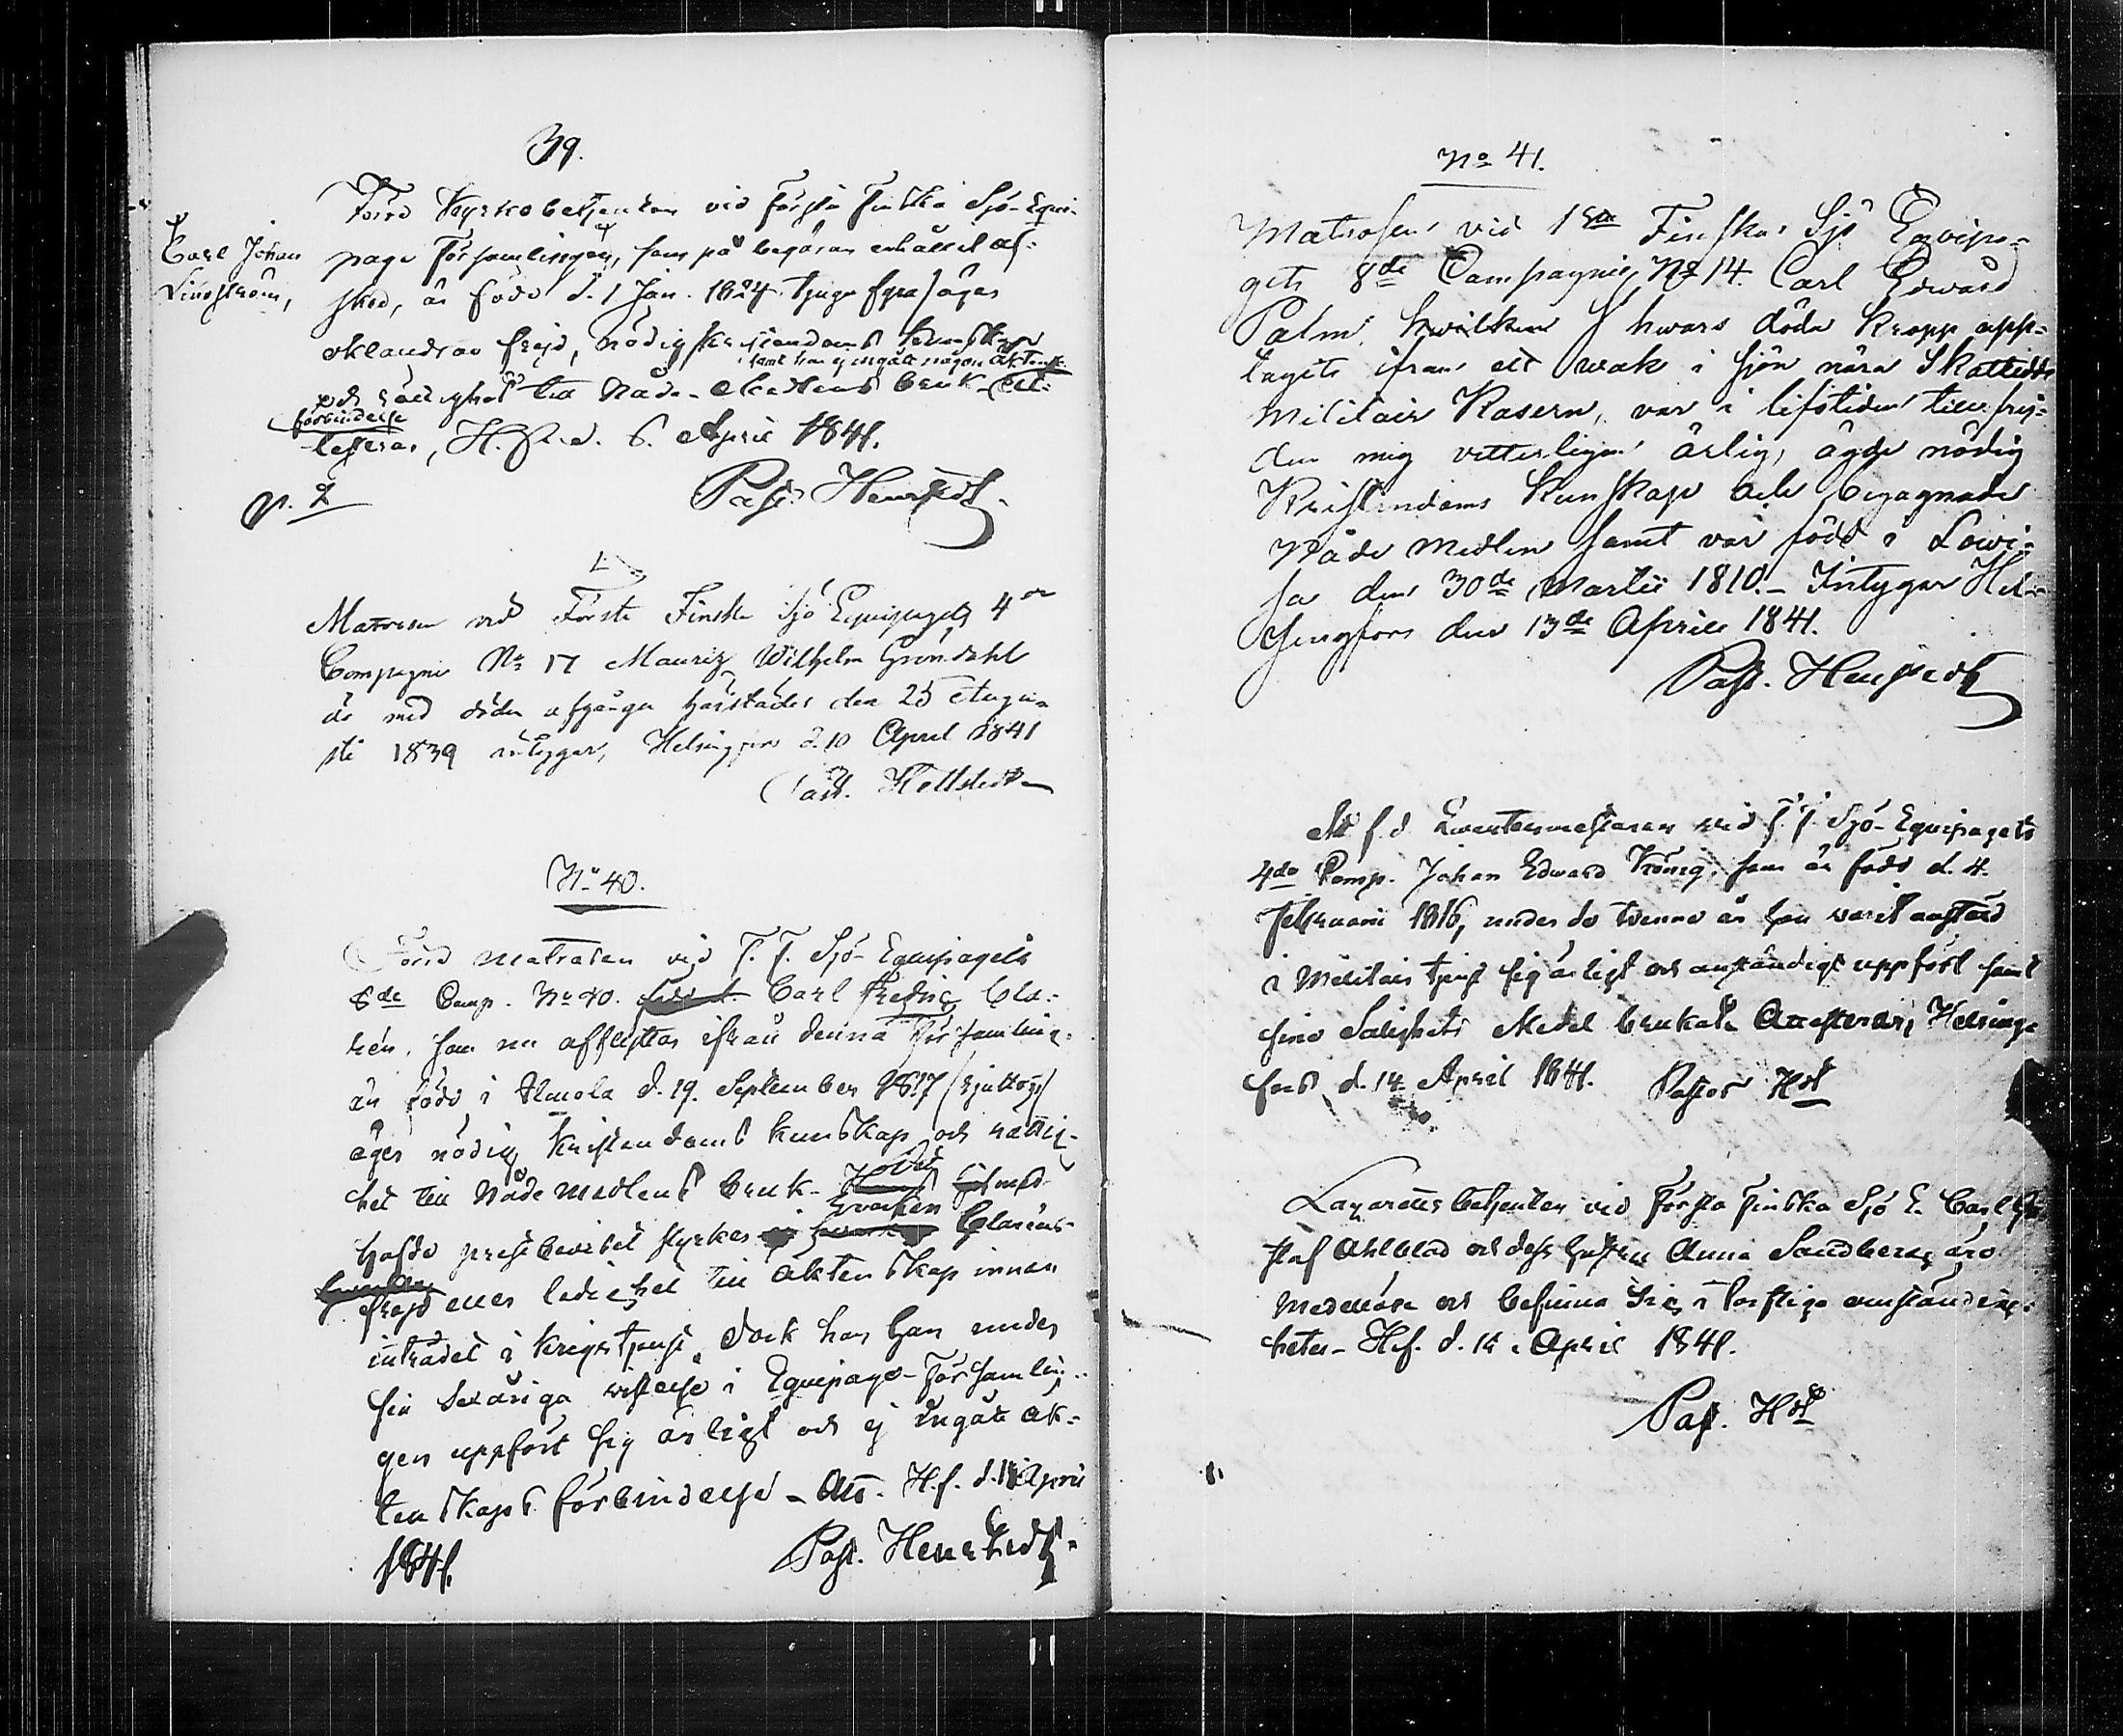 39.
Förre Kyrkobetjenten vid Första Finska Sjö-Equi-
Carl Johan
Lindström,
page Församlingen, som på begäran erhållit af-
sked, är född d. 1 Jan. 1824 tjugufyra / äger
oklandrad frejd, nödig kristendoms kunskap
samt har ej ingått någon äktensk.
förbindelse
och rättighet till Nåde-Medlens bruk - At-
testeras, H.fors d. 6. April 1841.
Past. Hellstedt
p. 2
Matrosen vid Första Finska Sjö Equipagets 4de
Compagnie No 17 Mauriz Wilhelm Gröndahl
är med döden afgången härstädes den 25 Augu-
sti 1839 intygar, Helsingfors d. 10 April 1841
Past. Hellstedt
No 40.
Förre matrosen vid F. F. Sjö-Equipagets
6de Comp. No 40. Carl Fredric Cla-
rén, som nu afflyttar ifrån denna Församling,
är född i Ilmola d. 19. September 1817 (sjutton)
äger nödig kristendoms kunskap och rättig-
het till Nåde medlens bruk. Det med-
hafde prestbeviset styrker hvarken Claréns
frejd eller ledighet till äktenskap innan
inträdet i krigstjenst, dock har han under
sin sexåriga vistelse i Equipage-Församlin-
gen uppfört sig ärligt och ej ingått äk-
tenskaps förbindelse - Att. H.f. d. April
1841.
Past. Hellstedt
No 41.
Matrosen vid 1sta Finska Sjö Equipa-
gets 8de Compagnie No 14. Carl Edward
Palm, hwilken hwars döda kropp upp-
tagits ifrån ett wak i sjön nära Skatudds
Militair Kasern, var i lifstiden till frej-
den mig vetterligen ärlig, ägde nödig
Kristendoms Kunskap och begagnade
Nåde Medlen samt var född i Lowi-
sa den 30de Martii 1810. - Intygar Hel-
singfors den 13de April 1841.
Past. Hellstedt
Att f.d. Qwartermästaren vid F. F. Sjö-Equipagets
4de Comp. Johan Edward König, som är född d. 4.
Februarii 1816, under de tvenne år han varit anställd
i Militair tjenst sig ärligt och anständigt uppfört samt
sine Salighets Medel brukat Attesteras, Helsing-
fors d. 14. April 1841. Pastor Hdt
Lazaretts betjenten vid Första Finska Sjö E. Carl Gu-
staf Ahlblad och dess hustru Anna Sandberg äro
medellösa och befinna sig i torftiga omständig-
heter - H.f. d. April 1841.
Past. Hdt